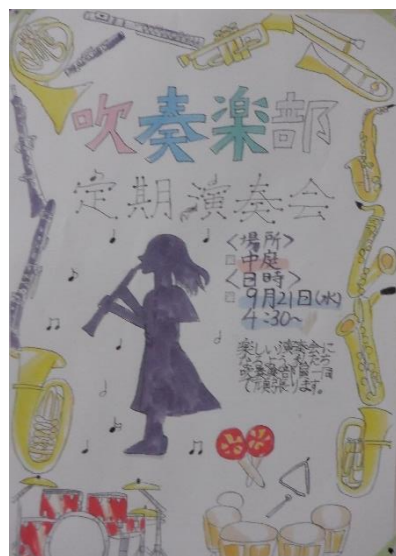 吹奏楽部
定期演奏会
<場所>
□ 中庭
<日時>
□ 9月21日(水)
4:30~
楽しい演奏会に
吹奏楽部員一同
で頑張ります。